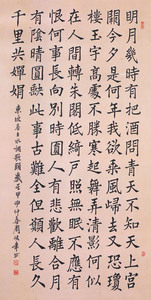 明月幾時有把酒問青天不知天上宮
闕今夕是何年我欲乘風歸去又恐瓊
樓玉宇高處不勝寒起舞弄清影何似
在人間轉朱閣低綺戶照無眠不應有
恨何事長向別時圓人有悲歡離合月
有陰晴圓缺此事古難全但願人長久
千里共嬋娟
東坡居士水調歌頭